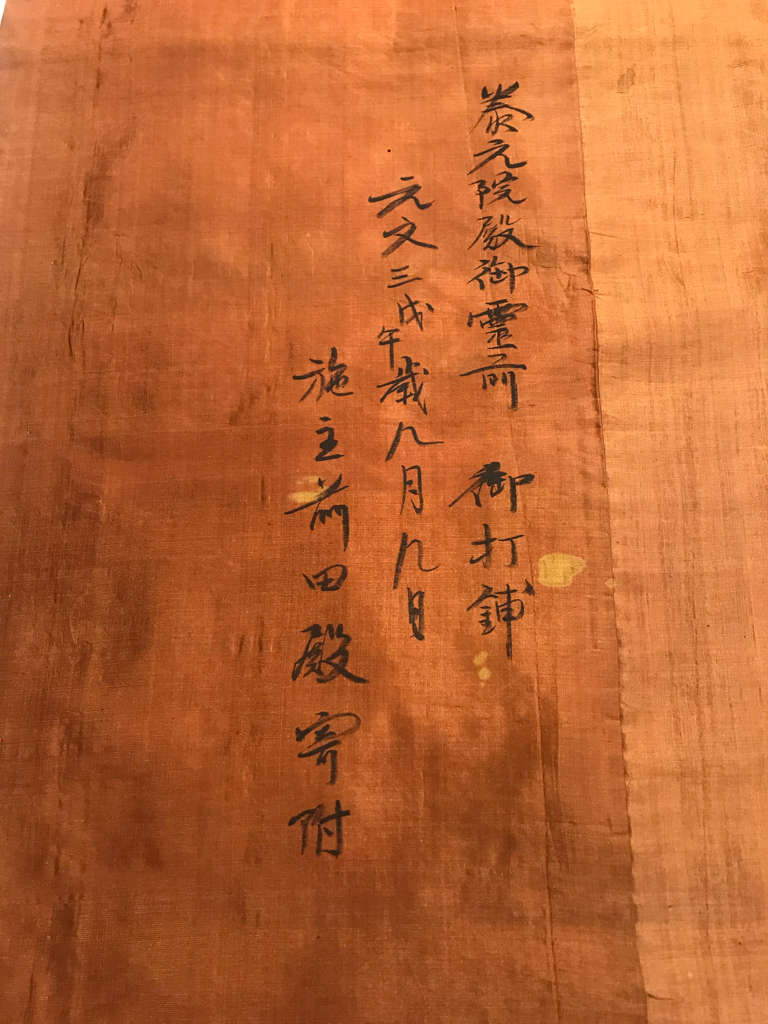 泰元院殿御靈前 御打鋪
元文三戊午歳九月九日
施主前田殿寄附